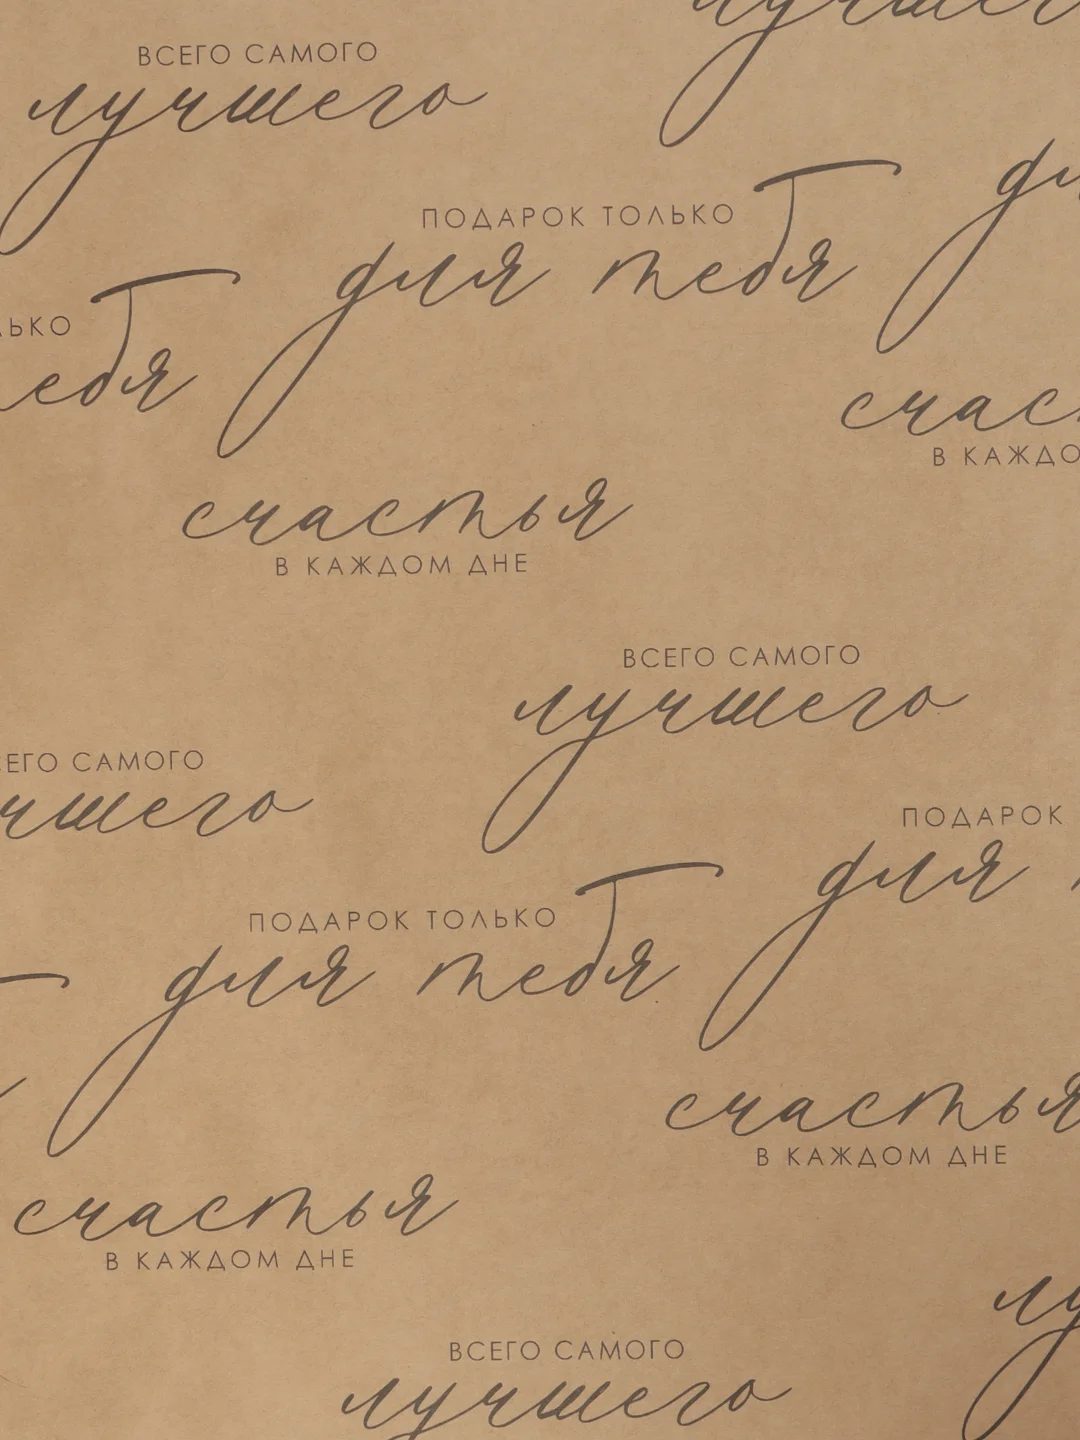 ВСЕГО САМОГО
лучшего
ПОДАРОК ТОЛЬКО
для тебя
тебя
счастья
В КАЖДОМ ДНЕ
В
ВСЕГО САМОГО
лучшего
САМОГО
ПОДАРОК
для
ПОДАРОК ТОЛЬКО
для тебя
счастья
В КАЖДОМ ДНЕ
счастья
В КАЖДОМ ДНЕ
ВСЕГО САМОГО
лучшего